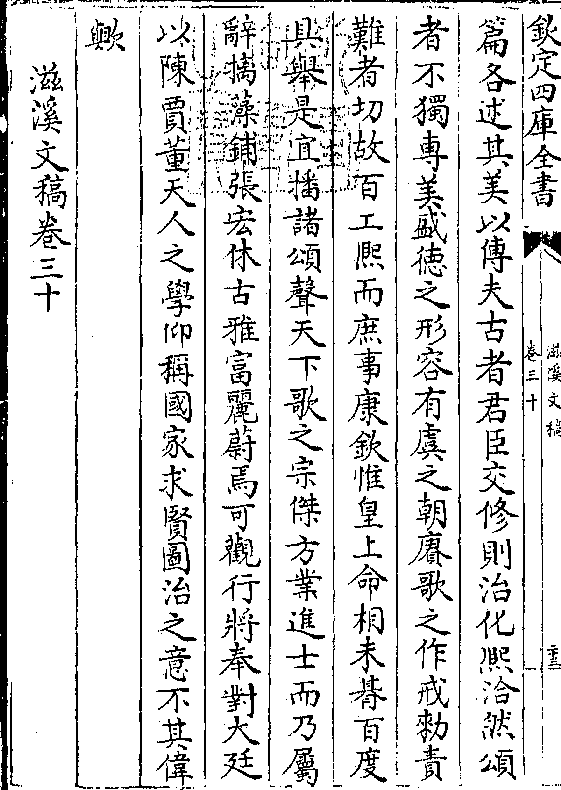 欽定四庫全書
滋溪文稿
卷三十
篇各述其美以傳夫古者君臣交修則治化熙洽然頌
者不獨專美盛德之形容有虞之朝賡歌之作戒勅責
難者切故百工熙而庶事康欽惟皇上命相未朞百度
具舉是宜播諸頌聲天下歌之宗傑方業進士而乃屬
辭摛藻鋪張宏休古雅富麗蔚焉可觀行將奉對大廷
以陳賈董天人之學仰稱國家求賢圖治之意不其偉
歟
滋溪文稿卷三十